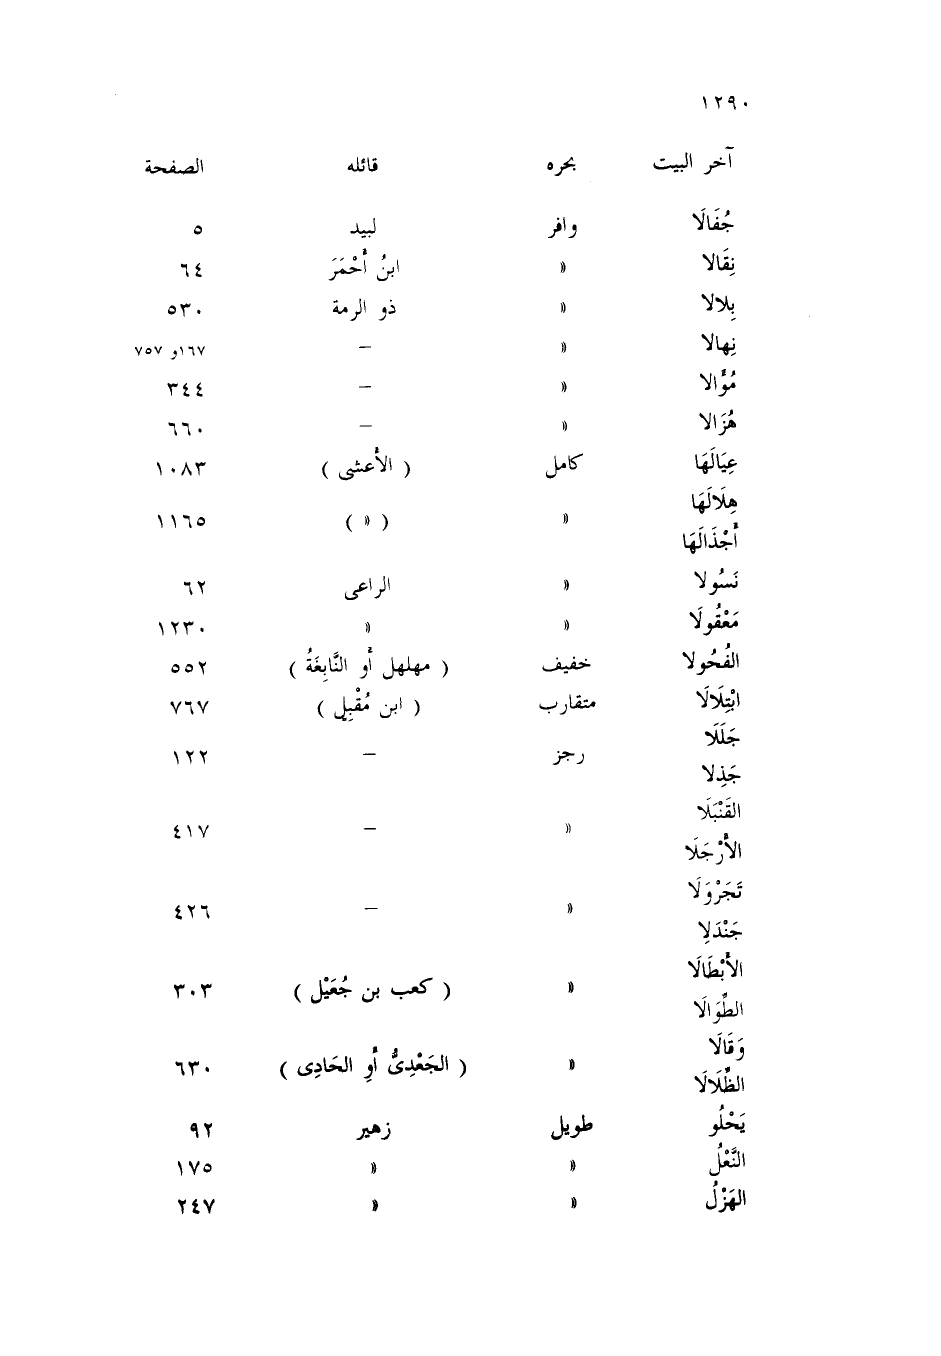 ١٢٩٠
آخر البيت بحره قائله الصفحة
جُفَالَا وافر لبيد ٥
نِقَالا » ابنُ أَحْمَرَ ٦٤
بِلالا » ذو الرمة ٥٣٠
نِهالا » – ١٦٧و ٧٥٧
مُؤَّالا » – ٣٤٤
هُزَالا » – ٦٦٠
عِيَالَهَا كامل ( الأعشى ) ١٠٨٣
هِلَالَهَا
» ( » ) ١١٦٥
أَجْذَالَهَا
نَسُولا » الراعى ٦٢
مَعْقُولَا » » ١٢٣٠
الفُحُولا خفيف ( مهلهل أو النَّابِغَةُ ) ٥٥٢
ابْتِلَالَا متقارب ( ابن مُقْبِل ) ٧٦٧
جَلَلَا
رجز – ١٢٢
جَذِلا
القَنْبَلَا
» – ٤١٧
الأَرْجَلَا
تَجَرْوَلَا
» – ٤٢٦
جَنْدَلِا
الأَبْطَالَا
» ( كعب بن جُعَيْل ) ٣٠٣
الطِّوَالَا
وَقَالَا
» ( الجَعْدِىُّ أَوِ الحَادِى ) ٦٣٠
الظِّلَالَا
يَحْلُو طويل زهير ٩٢
النَّعْلُ » » ١٧٥
الهَزْلُ » » ٢٤٧